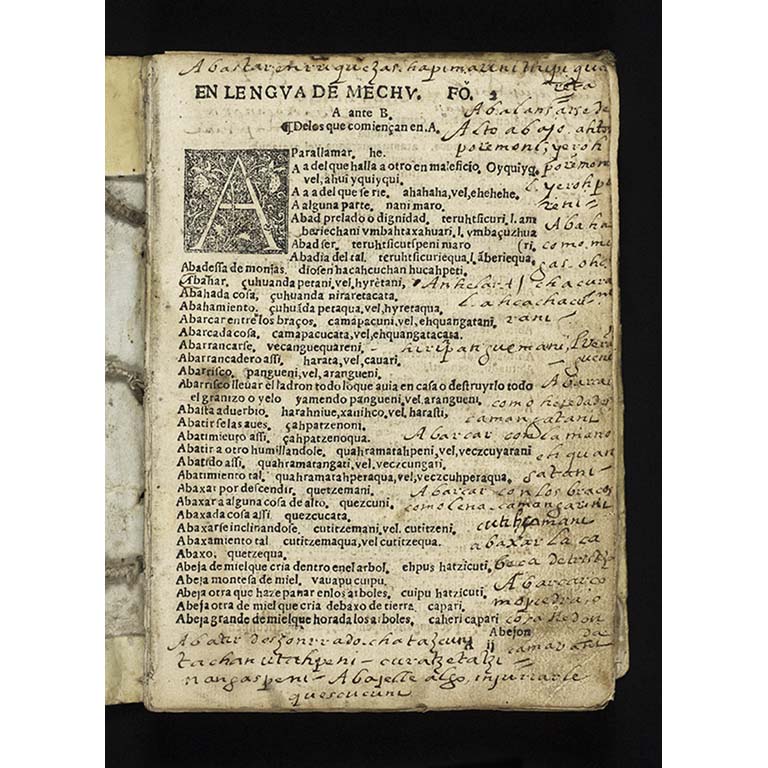 Abastar en rriquezas. hapimarini
EN LENGVA DE MECHV. FO. 2
A ante B.
¶Delos que comiençan en. A.
A
Parallamar. he.
A a del que halla a otro en maleficio. Oyquiyq.
vel, ahui yquiyqui.
A a a del que se rie. ahahaha, vel, ehehehe.
A alguna parte. nani maro.
Abad prelado o dignidad. teruhtsicuri. l. am
beriechani vmbahtaxahuari. l. vmbaçuzhua
Abad ser. teruhtsicutspeni niaro (ri,
Abadia del tal. teruhtsicuriequa. l. āberiequa.
Abadessa de monjas. diosen hacahcuchan hucahpeti.
Abahar. çuhuanda petani, vel, hyretani.
Abahada cosa, çuhuanda niraretacata.
Abahamiento. çuhuāda petaqua, vel, hyretaqua.
Abarcar entre los braços. camapacuni, vel, ehquangatani.
Abarcada cosa. camapacucata, vel, ehquangatacata.
Abarrancarse. vecanguequareni.
Abarrancadero assi. harata, vel, cauari.
Abarrisco. pangueni, vel, arangueni.
Abarrisco lleuar el ladron todo lo que auia en casa o destruyrlo todo
el granizo o yelo yamendo pangueni, vel, arangueni.
Abasta aduerbio. harahniue, xanihco, vel, harasti.
Abatirse las aues. çahpatzenoni.
Abatimieuto assi. çahpatzenoqua.
Abatir a otro humillandole. quahramatahpeni, vel, veczcuyarani
Abatido assi. quahramatangati, vel, veczcungari.
Abatimiento tal. quahramatahperaqua, vel, veczcuhperaqua.
Abaxar por descendir. quetzemani.
Abaxar a alguna cosa de alto. quezcuni.
Abaxada cosa assi quezcucata.
Abaxarse inclinandose. cutitzemani, vel. cutitzeni.
Abaxamiento tal cutitzemaqua, vel cutitzequa.
Abaxo. quetzequa.
Abeja de miel que cria dentro enel arbol. ehpus hatzicuti.
Abeja montesa de miel. vauapu cuipu.
Abeja otra que haze panar enlos arboles. cuipu hatzicuti.
Abeja otra de miel que cria debaxo de tierra. capari.
Abeja grande de miel que horada los arboles. caheri capari
Abejon
A ij
Abalansarse de
Alto abajo. ahtsi
poremoni, yeroh
poremoni
l. yerohpe
reni =
Abaha
como mi
gas. ohe
Anhelar +
rani —
Abarra
como heredador
camangatani
Abarcar con la mano
ehquan
gatani —
Abarcar con los braços
como lena. camangarini
abaxar la ca
beça
Abarcar co
mo piedra jo
cosa Redon
da
camarani
Abatir deszonrrado. chatazcuni
tachanutahpeni — curatzetatzi
nangaspeni — Abajesse algo, injurrarle
quescucuni